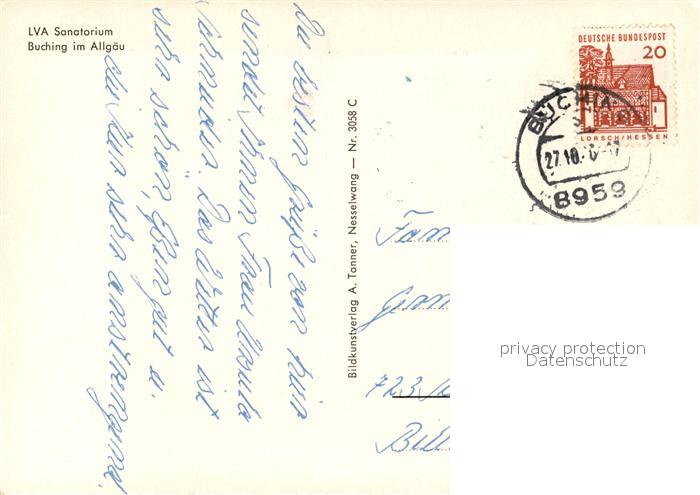 LVA Sanatorium
Buching im Allgäu
Die besten Grüße von hier
sendet Ihnen Frau Ursula
Das Wetter ist
sehr schön, Essen gut u.
die Kur sehr anstrengend.
Bildkunstverlag A. Tanner, Nesselwang — Nr. 3058 C
DEUTSCHE BUNDESPOST
20
LORSCH/HESSEN
BUCHING
27.10.
8959
Fam
723
Bill
privacy protection
Datenschutz